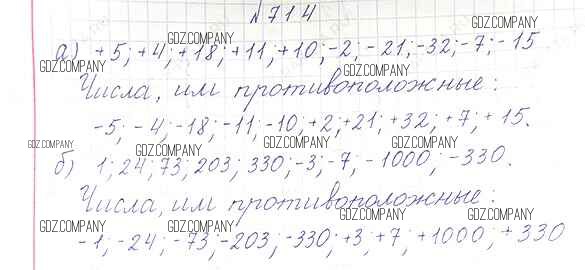 №714
GDZ.COMPANY GDZ.COMPANY
а) +5; +4; +18; +11; +10; -2; -21; -32; -7; -15
GDZ.COMPANY GDZ.COMPANY
Числа, им противоположные:
-5; -4; -18; -11; -10; +2; +21; +32; +7; +15.
GDZ.COMPANY GDZ.COMPANY GDZ.COMPANY GDZ.COMPANY
б) 1; 24; 73; 203; 330; -3; -7; -1000; -330.
Числа, им противоположные:
GDZ.COMPANY GDZ.COMPANY GDZ.COMPANY GDZ.COMPANY
-1; -24; -73; -203; -330; +3; +7; +1000; +330